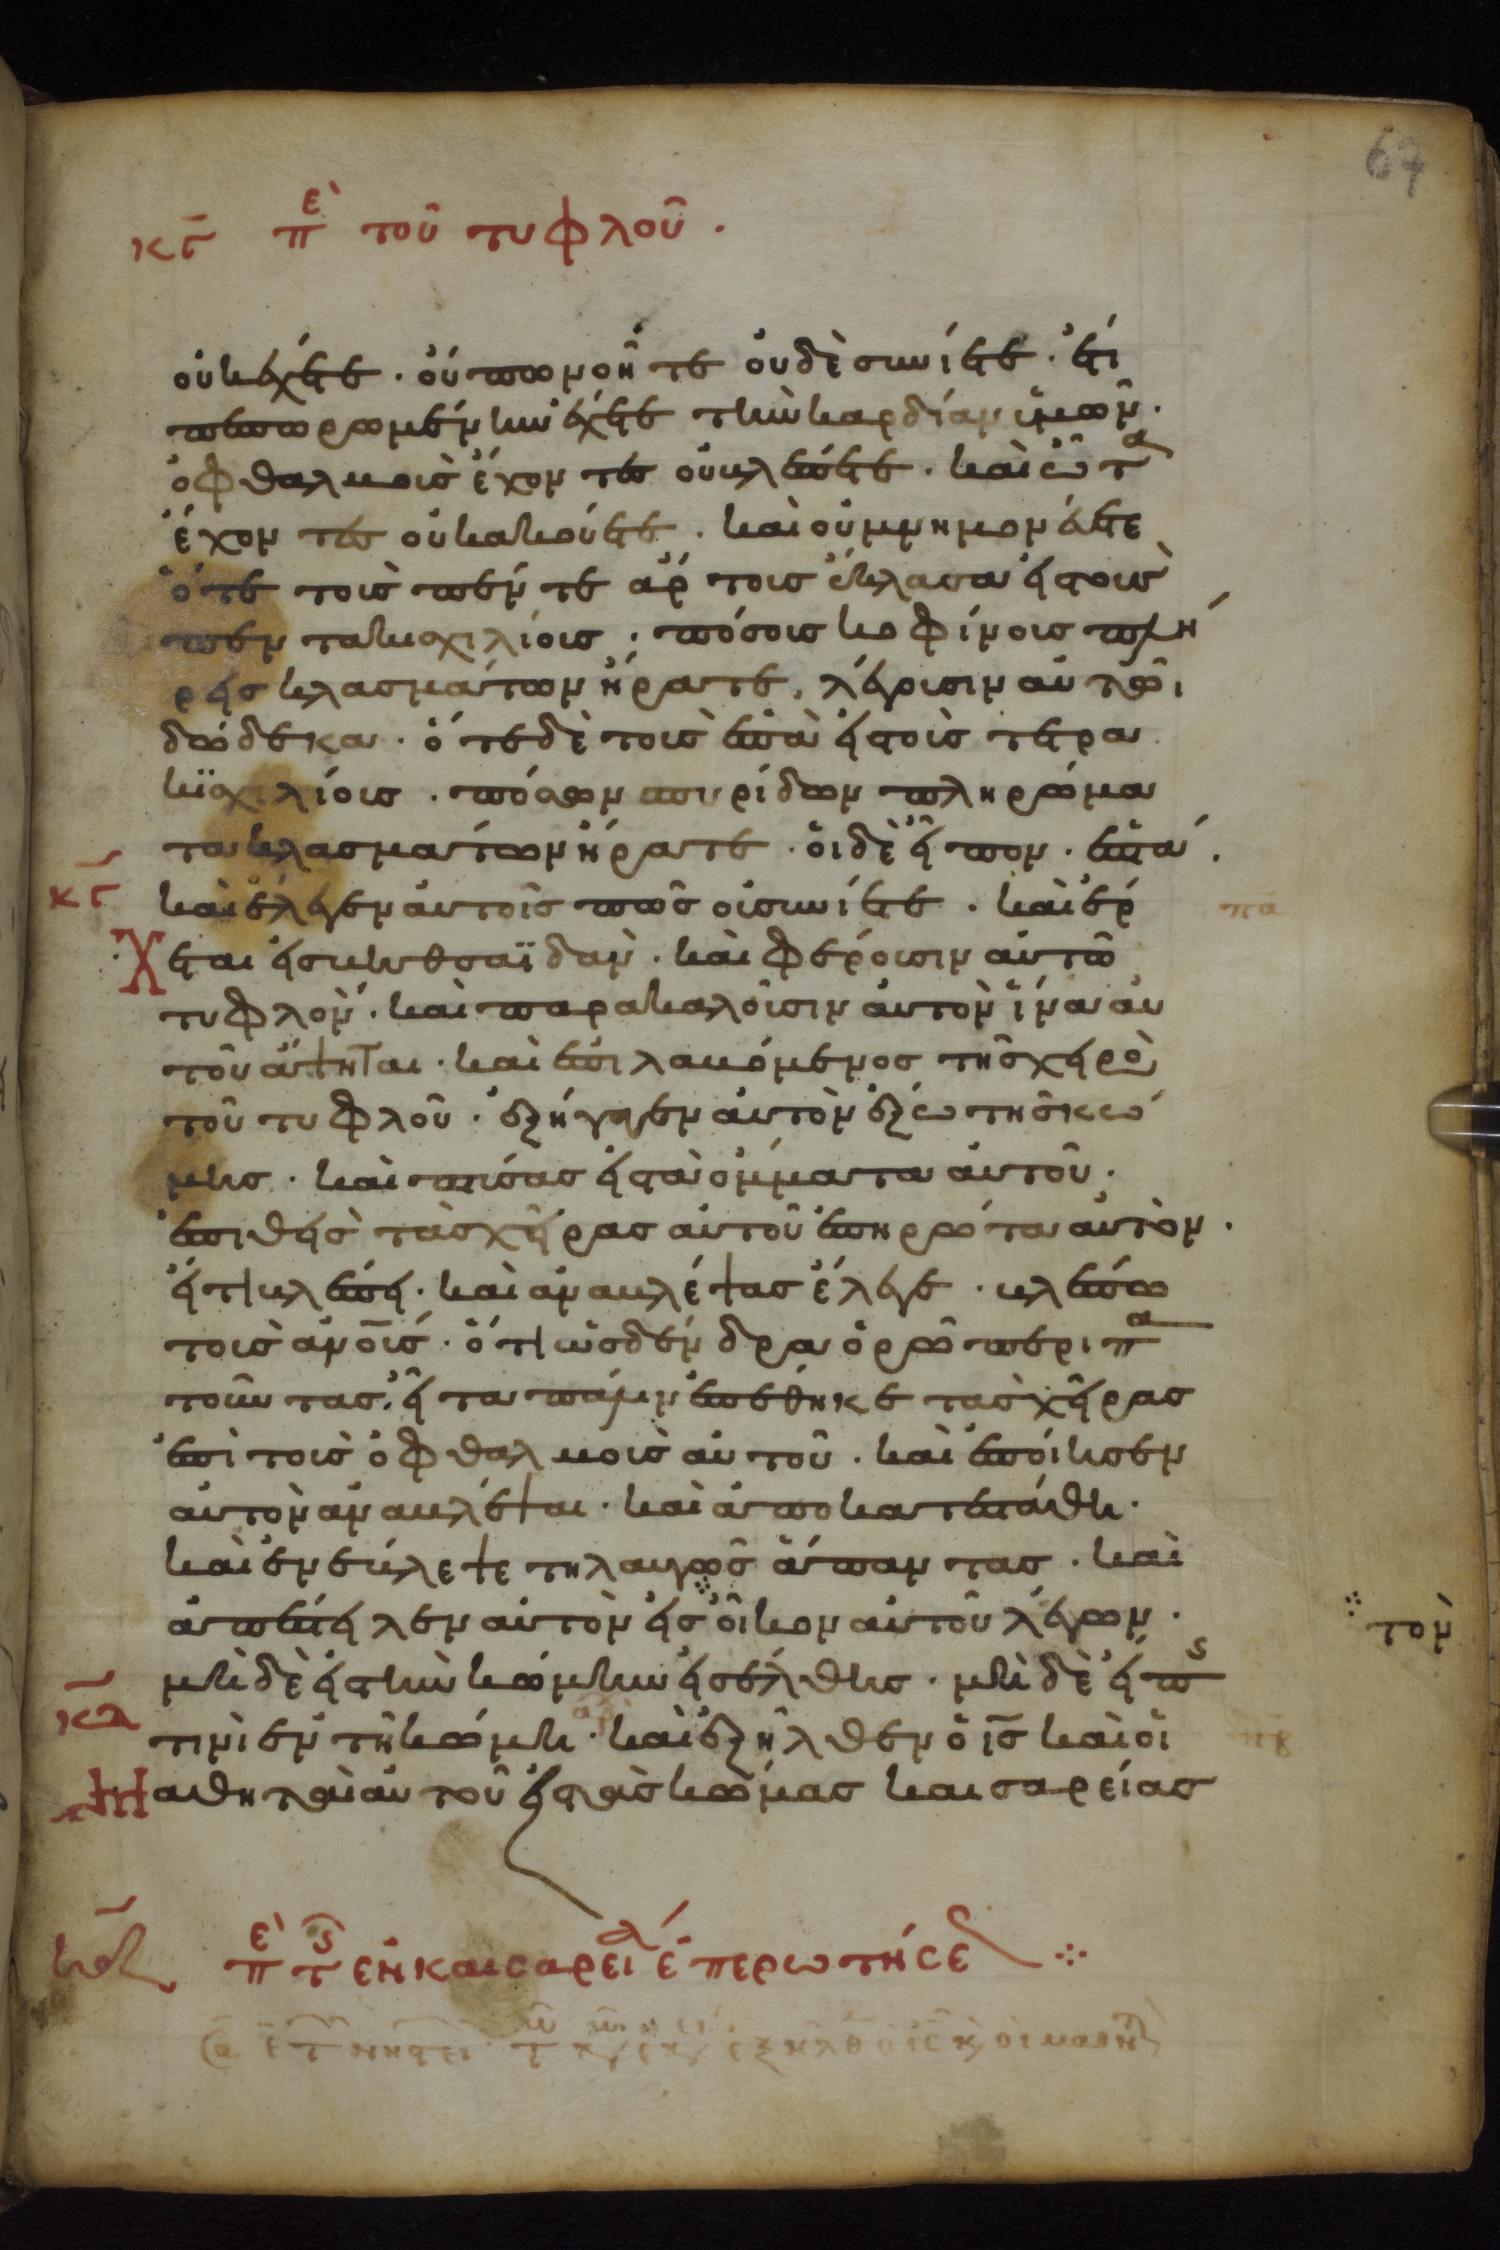 67
κγ̄ πὲ τοῦ τυφλοῦ.
οὐκ ἔχετε· οὔπω νοῆτε οὐδὲ συνίετε· ἔτι
πεπωρωμένην ἔχετε τὴν καρδίαν ὑμῶν·
ὀφθαλμοὺς ἔχοντες οὐ βλέπετε· καὶ ὦτα
ἔχοντες οὐκ ἀκούετε· καὶ οὐ μνημονεύετε
ὅτε τοὺς πέντε ἄρτους ἔκλασα εἰς τοὺς
πεντακισχιλίους· πόσους κοφίνους πλή
ρεις κλασμάτων ἤρατε, λέγουσιν αὐτῶι
δώδεκα· ὅτε δὲ τοὺς ἑπτὰ εἰς τοὺς τετρα
κισχιλίους· πόσων σπυρίδων πληρώμα
τα κλασμάτων ἤρατε· οἱ δὲ εἶπον· ἑπτά.
κγ̄ καὶ ἔλεγεν αὐτοῖς πῶς οὐ συνίετε· καὶ ἔρ
χεται εἰς βηθσαϊδὰν· καὶ φέρουσιν αὐτῶ
τυφλὸν· καὶ παρακαλοῦσιν αὐτὸν ἵνα αὐ
τοῦ ἅψηται· καὶ ἐπιλαβόμενος τῆς χειρὸς
τοῦ τυφλοῦ· ἐξήγαγεν αὐτὸν ἔξω τῆς κώ
μης· καὶ πτύσας εἰς τὰ ὄμματα αὐτοῦ·
ἐπιθεὶς τὰς χεῖρας αὐτοῦ ἐπηρώτα αὐτὸν·
εἴ τι βλέπει· καὶ ἀναβλέψας ἔλεγε· βλέπω
τοὺς ἀν̄οῦς· ὅτι ὡς δένδρα ὁρῶ περιπα
τοῦντας· εἶτα πάλιν ἐπέθηκε τὰς χεῖρας
ἐπὶ τοὺς ὀφθαλμοὺς αὐτοῦ· καὶ ἐποίησεν
αὐτὸν ἀναβλέψαι· καὶ ἀποκατεστάθη·
καὶ ἐνέβλεψε τηλαυγῶς ἅπαντας· καὶ
ἀπέστειλεν αὐτὸν εἰς ⁘ οἶκον αὐτοῦ λέγων·
⁘ τὸν
μὴ δὲ εἰς τὴν κώμην εἰσέλθης· μὴ δὲ εἴπης
κδ̄ τινὶ ἐν τῆ κώμη· καὶ ἐξῆλθεν ὁ ἰς̄ καὶ οἱ
μαθηταὶ αὐτοῦ εἰς τὰς κώμας καισαρείας
πὲ τς ἐν καισαρεία ἐπερωτήσε ⁘